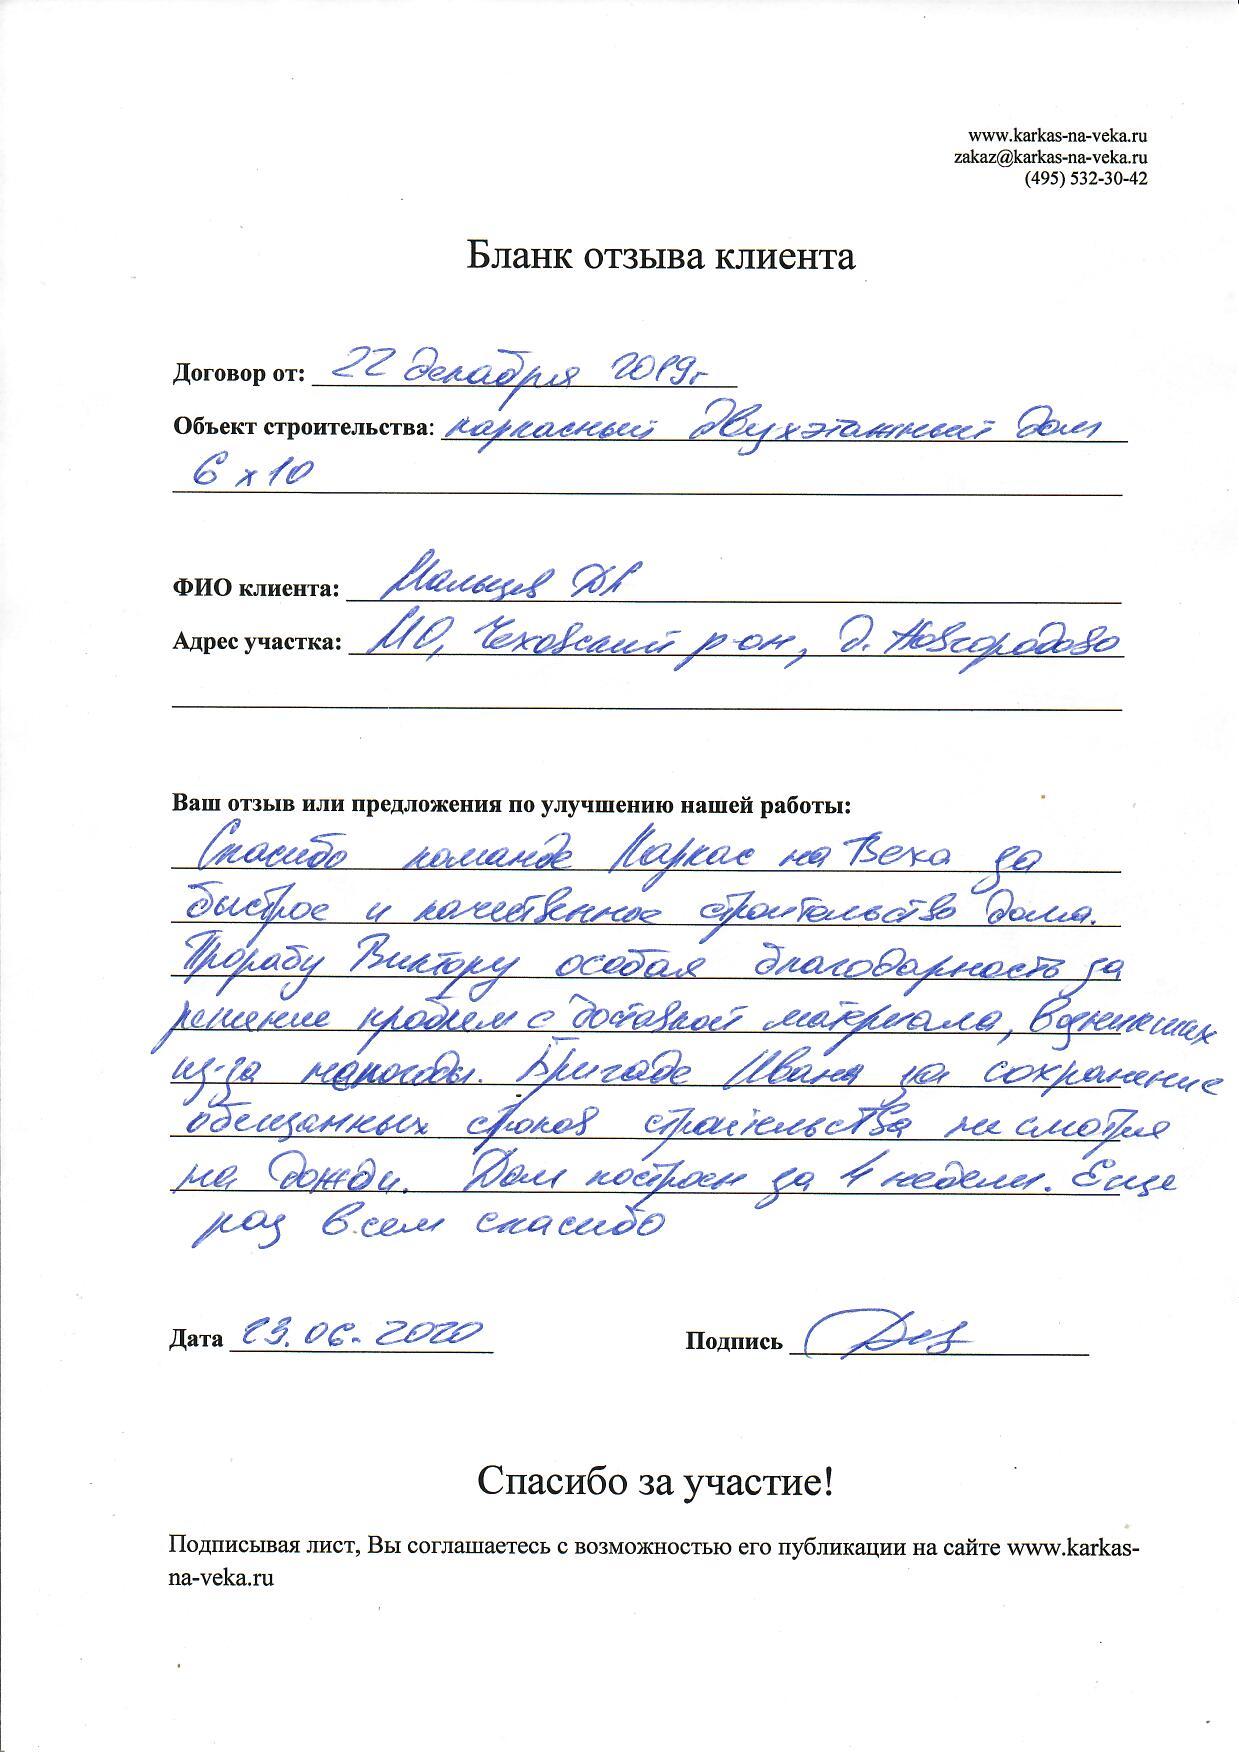 www.karkas-na-veka.ru
zakaz@karkas-na-veka.ru
(495) 532-30-42
Бланк отзыва клиента
Договор от: 22 декабря 2019г
Объект строительства: каркасный двухэтажный дом
6 х 10
ФИО клиента: Мальцев
Адрес участка: МО, Чеховский р-он, д. Новгородово
Ваш отзыв или предложения по улучшению нашей работы:
Спасибо команде Каркас на Века за
быстрое и качественное строительство дома.
Прорабу Виктору особая благодарность за
решение проблем с доставкой материала,
из-за непогоды. Бригаде Ивана за сохранение
обещанных сроков строительства не смотря
на дожди. Дом построен за 4 недели. Еще
раз всем спасибо
Дата 23.06.2020 Подпись
Спасибо за участие!
Подписывая лист, Вы соглашаетесь с возможностью его публикации на сайте www.karkas-
na-veka.ru